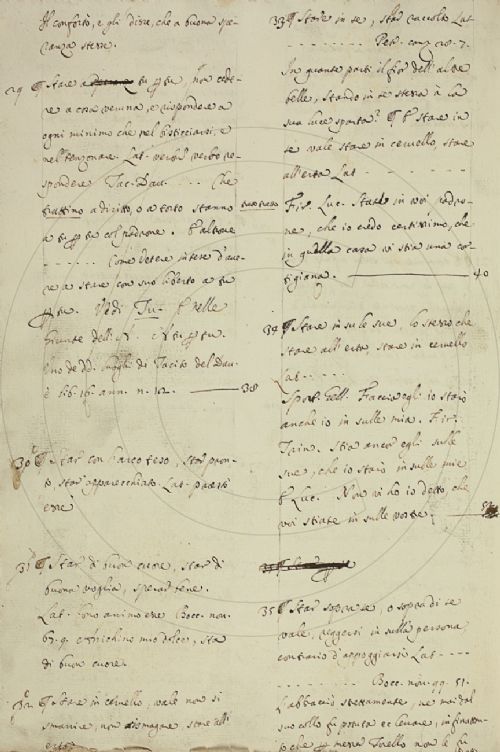 Il conforto, e gli disse, che a buona spe-
ranza stesse.
29 ¶ Stare a tu per tu, non cede-
re a cosa veruna, e rispondere a
ogni minimo che nel bisticciarsi, e
nell'tenzonare. Lat. verbum verbo re-
spondere Tac. Dav. . . . Che
a diritto, o a torto stanno
a tu per tu col padrone. E altrove
Come Vetere intese d'ave-
re a stare con suo liberto a tu
per tu. Vedi Tu. E nelle
Giunte dell' A. A tu per tu.
Uno de' DD. luoghi di Tacito del Dav.
è lib. 16. ann. n. 10. 38
30 ¶ Star con l'arco teso, star pron-
to, star apparecchiato. Lat. paratum
esse
31 ¶ Star di buon cuore, star di
buona voglia, sperar bene.
Lat. bono animo esse Bocc. nov.
mio dolce, sta
di buon cuore.
32 ¶ Stare in cervello, vale non si
smarrire, non stare all'
erta
33 ¶ Stare in se, star raccolto Lat.
Pet. canz. 20. 7.
In quante parti il fior dell'altre
belle, stando in se stessa à la
sua luce sparta? ¶ E stare in
se vale stare in cervello, stare
all'erta Lat.
Fir. Luc. State in voi padro-
ne, che io credo certissimo, che
in quella casa vi stia una cor-
tigiana. 40
34 ¶ Stare in su le sue, lo stesso che
stare all'erta, stare in cervello
Lat.
Sport. Gell. Faccia egli: io starò
anche io in sulle mia. Fir.
Trin. Stia ancor egli sulle
sue, che io starò in sulle mie
E Luc. Non vi ho io detto, che
voi stiate in sulle vostre.
35 ¶ Star sopra se, o sopra di se
vale, reggersi in sulla persona
contrario d'appoggiarsi Lat.
Bocc. nov. 99. 51.
L'abbracciò strettamente, ne mai dal
suo collo fu potuta levare, infinattan-
to che per messer Torello non le fu